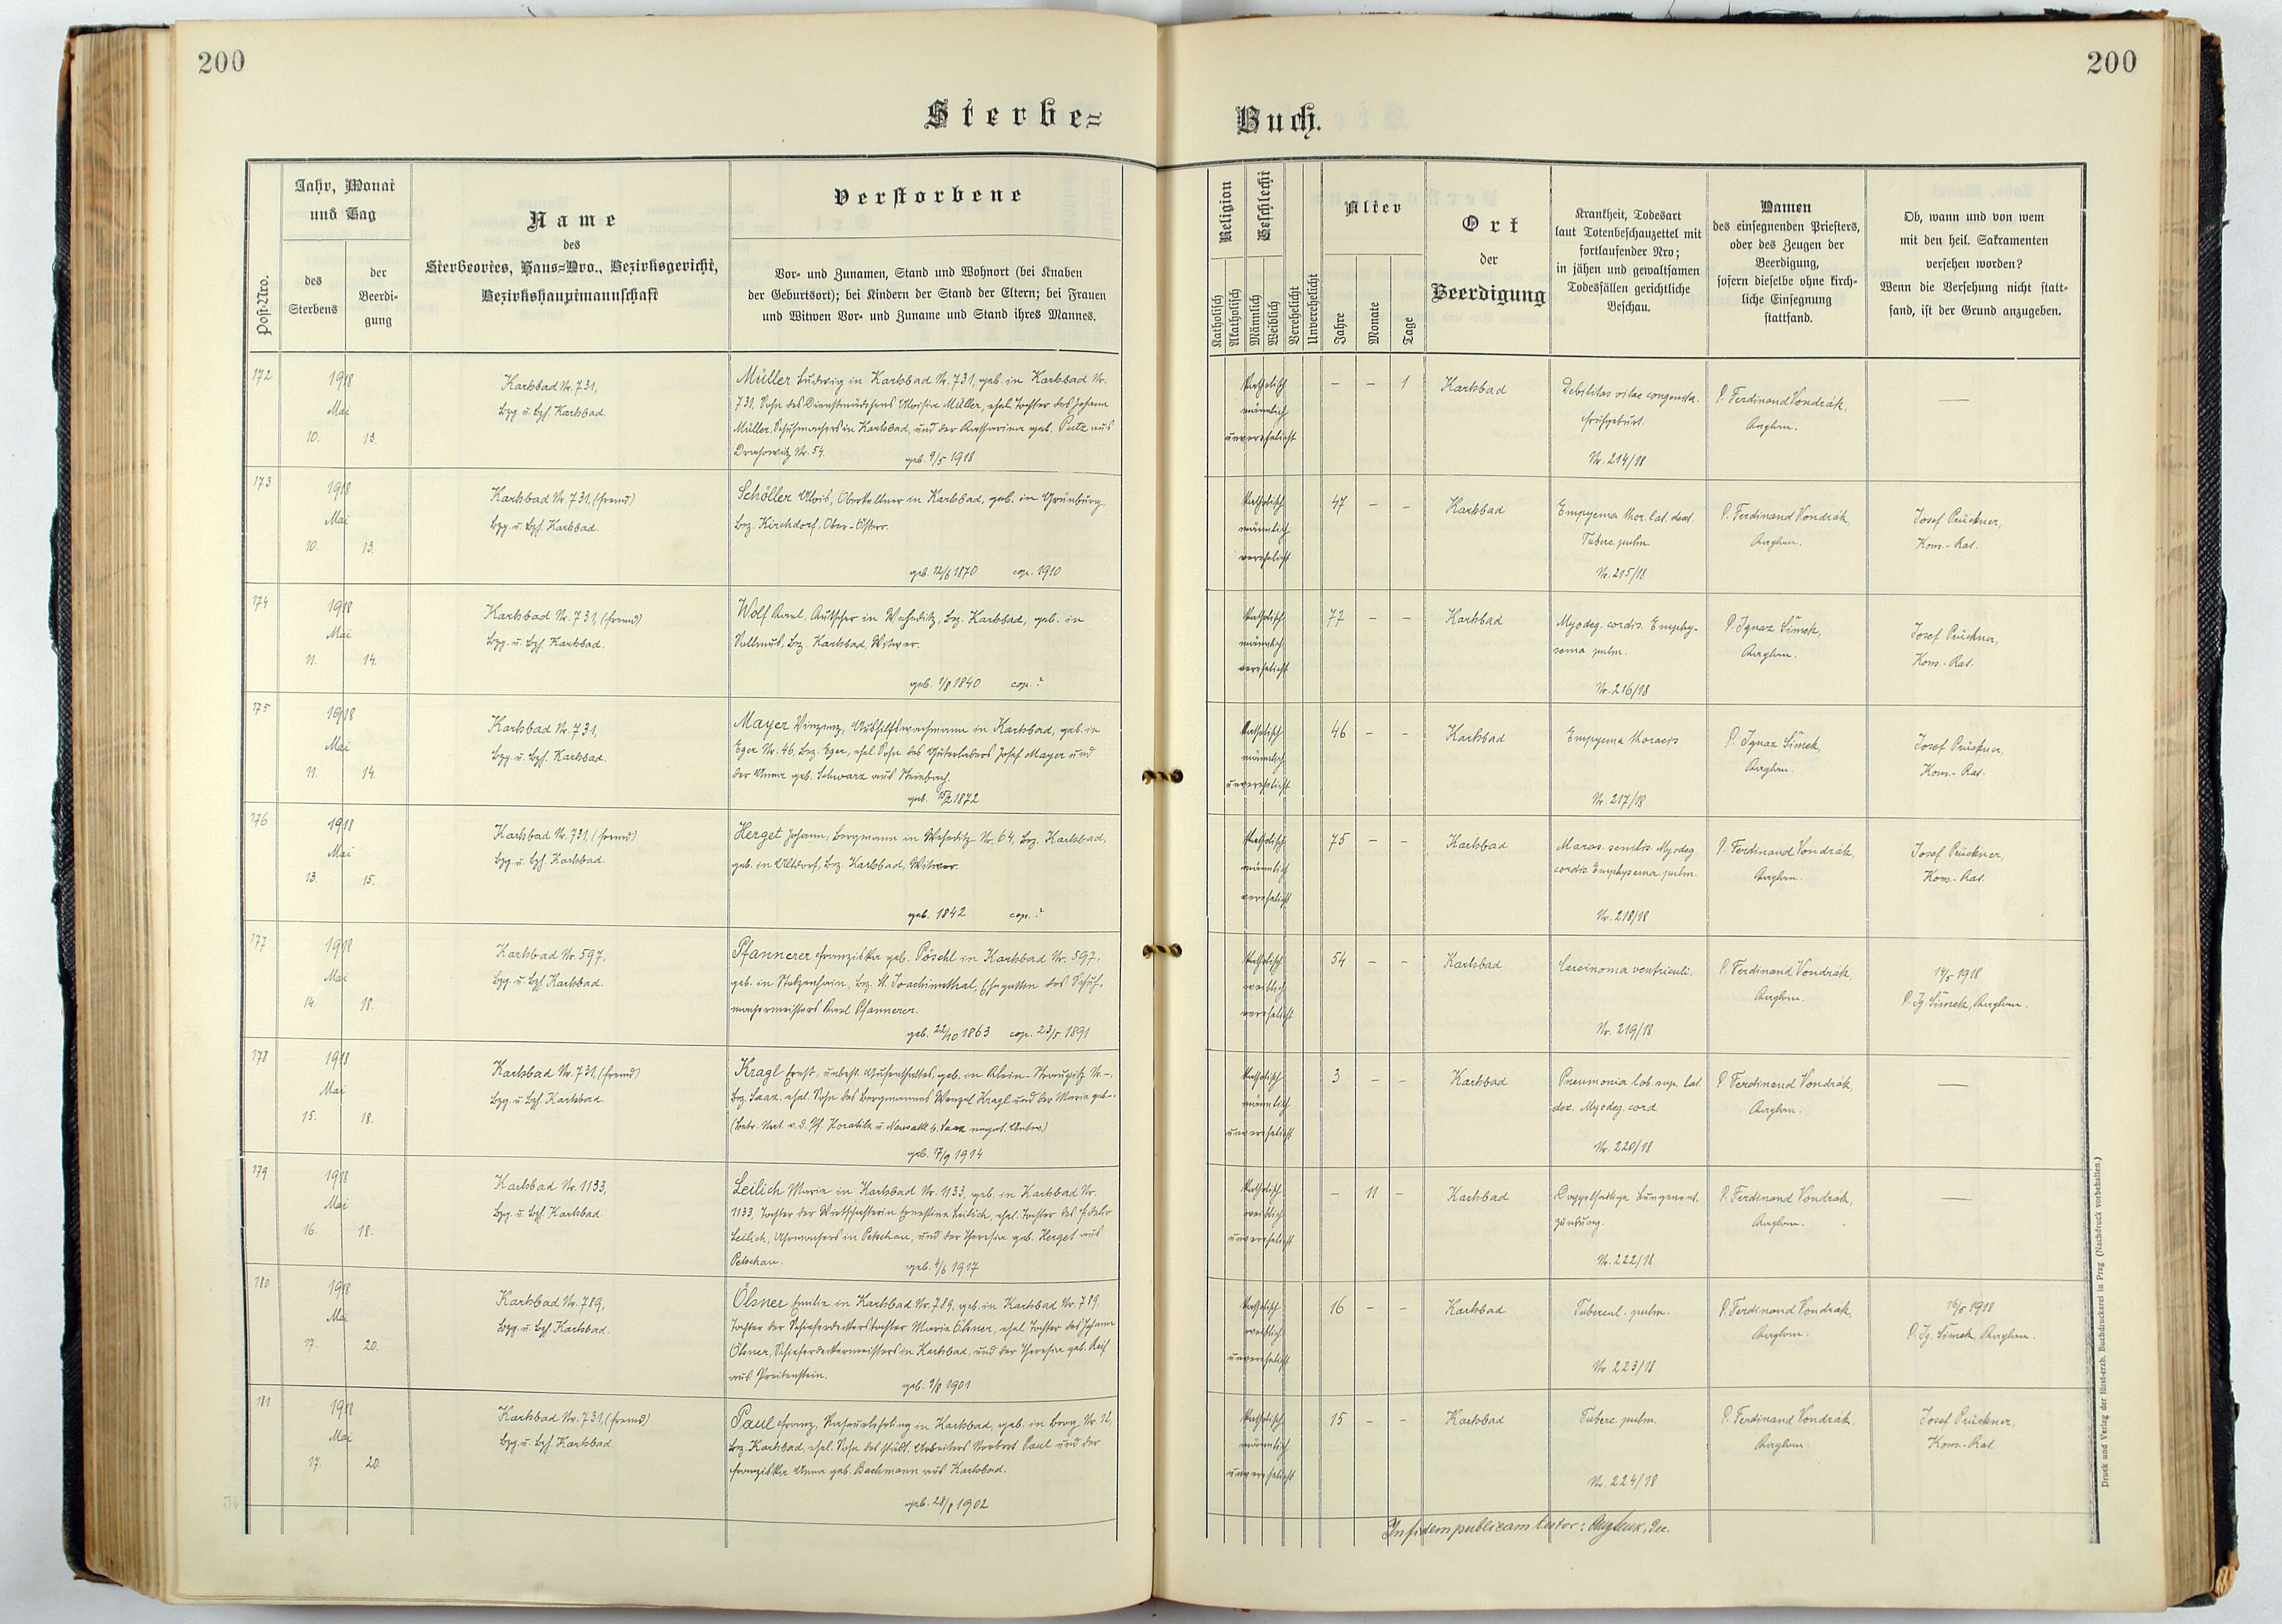 200
200
Sterbe=
Buch.
Post-Nro.
Jahr, Monat
und Tag
des
Sterbens
der
Beerdi-
gung
Name
des
Sterbeortes, Haus=Nro., Bezirksgericht,
Bezirkshauptmannschaft
Verstorbene
Vor- und Zunamen, Stand und Wohnort (bei Knaben
der Geburtsort); bei Kindern der Stand der Eltern; bei Frauen
und Witwen Vor- und Zuname und Stand ihres Mannes.
Religion
Katholisch
Akatholisch
Geschlecht
Männlich
Weiblich
Verehelicht
Unverehelicht
Alter
Jahre
Monate
Tage
Ort
der
Beerdigung
Krankheit, Todesart
laut Totenbeschauzettel mit
fortlaufender Nro;
in jähen und gewaltsamen
Todesfällen gerichtliche
Beschau.
Namen
des einsegnenden Priesters,
oder des Zeugen der
Beerdigung,
sofern dieselbe ohne kirch-
liche Einsegnung
stattfand.
Ob, wann und von wem
mit den heil. Sakramenten
versehen worden?
Wenn die Versehung nicht statt-
fand, ist der Grund anzugeben.
172
1918
Mai
10. 13.
Karlsbad Nr. 731,
bzg. u. bzh. Karlsbad.
Müller Ludwig in Karlsbad Nr. 731, geb. in Karlsbad Nr.
731, Sohn des Dienstmädchens Aloisia Müller, ehel. Tochter des Johann
Müller, Schuhmachers in Karlsbad, und der Katharina geb. Putz aus
Nr. 54. geb. 9/5 1918
katholisch
männlich
unverehelicht
- - 1
Karlsbad
Debilitas vitae congenita.
Frühgeburt.
Nr. 214/18
P. Ferdinand Vondrák,
—
173
1918
Mai
10. 13.
Karlsbad Nr. 731, (fremd)
bzg. u. bzh. Karlsbad.
Schöller Alois, Oberkellner in Karlsbad, geb. in Grünburg,
bez. Kirchdorf, Ober-Österr.
geb. 12/6 1870 cop. 1910
katholisch
männlich
verehelicht
47 - -
Karlsbad
Empyema thor. lat. dext.
Tuberc. pulm.
Nr. 215/18
P. Ferdinand Vondrák,
Josef Prückner,
Kons.-Rat.
174
1918
Mai
11. 14.
Karlsbad Nr. 731, (fremd)
bzg. u. bzh. Karlsbad.
Wolf Karl, Kutscher in Weheditz, bez. Karlsbad, geb. in
Sollmus, bez. Karlsbad, Witwer.
geb. 1/8 1840 cop. ?
katholisch
männlich
verehelicht
77 - -
Karlsbad
Myodeg. cordis. Emphy-
sema pulm.
Nr. 216/18
P. Ignaz Šimek,
Josef Prückner,
Kons.-Rat.
175
1918
Mai
11. 14.
Karlsbad Nr. 731,
bzg. u. bzh. Karlsbad.
Mayer Vinzenz, Aushilfswachmann in Karlsbad, geb. in
Eger Nr. 46, bez. Eger, ehel. Sohn des Güterladers Josef Mayer und
der Anna geb. Schwarz aus Steinbach.
geb. 15/2 1872
katholisch
männlich
unverehelicht
46 - -
Karlsbad
Empyema thoracis
Nr. 217/18
P. Ignaz Šimek,
Josef Prückner,
Kons.-Rat.
176
1918
Mai
13. 15.
Karlsbad Nr. 731, (fremd)
bzg. u. bzh. Karlsbad.
Herget Johann, Bergmann in Weheditz Nr. 64, bez. Karlsbad,
geb. in Altdorf, bez. Karlsbad, Witwer.
geb. 1842 cop. ?
katholisch
männlich
verehelicht
75 - -
Karlsbad
Maras. senilis. Myodeg.
cordis. Emphysema pulm.
Nr. 218/18
P. Ferdinand Vondrák,
Josef Prückner,
Kons.-Rat.
177
1918
Mai
14. 18.
Karlsbad Nr. 597,
bzg. u. bzh. Karlsbad.
Pfannerer Franziska geb. Pöschl in Karlsbad Nr. 597,
geb. in Stolzenhain, bez. St. Joachimsthal, Ehegattin des Schuh-
machermeisters Karl Pfannerer.
geb. 22/10 1863 cop. 23/5 1891
katholisch
weiblich
verehelicht
54 - -
Karlsbad
Carcinoma ventriculi.
Nr. 219/18
P. Ferdinand Vondrák,
14/5 1918
P. Ig. Šimek,
178
1918
Mai
15. 18.
Karlsbad Nr. 731, (fremd)
bzg. u. bzh. Karlsbad.
Kragl Ernst, unbest. Aufenthaltes, geb. in Klein-Straupitz Nr. -,
bez. Saaz, ehel. Sohn des Bergmannes Wenzel Kragl und der Maria geb. -.
geb. 7/9 1914
katholisch
männlich
unverehelicht
3 - -
Karlsbad
Pneumonia lob. sup. lat.
dex. Myodeg. cord.
Nr. 220/18
P. Ferdinand Vondrák,
—
179
1918
Mai
16. 18.
Karlsbad Nr. 1133,
bzg. u. bzh. Karlsbad.
Leilich Maria in Karlsbad Nr. 1133, geb. in Karlsbad Nr.
1133, Tochter der Wirtschafterin Ernestine Leilich, ehel. Tochter des Fidelis
Leilich, Uhrmachers in Petschau, und der Theresia geb. Herget aus
Petschau. geb. 4/6 1917
katholisch
weiblich
unverehelicht
- 11 -
Karlsbad
Doppelseitige Lungenent-
zündung.
Nr. 222/18
P. Ferdinand Vondrák,
—
180
1918
Mai
17. 20.
Karlsbad Nr. 789,
bzg. u. bzh. Karlsbad.
Ölsner Emilie in Karlsbad Nr. 789, geb. in Karlsbad Nr. 789,
Tochter der Schieferdeckerstochter Maria Ölsner, ehel. Tochter des Johann
Ölsner, Schieferdeckermeisters in Karlsbad, und der Theresia geb. Reif
aus Preitenstein. geb. 9/8 1901
katholisch
weiblich
unverehelicht
16 - -
Karlsbad
Tubercul. pulm.
Nr. 223/18
P. Ferdinand Vondrák,
16/5 1918
P. Ig. Šimek,
181
1918
Mai
17. 20.
Karlsbad Nr. 731, (fremd)
bzg. u. bzh. Karlsbad.
Paul Franz, in Karlsbad, geb. in Berg Nr. 14,
bez. Karlsbad, ehel. Sohn des städt. Arbeiters Norbert Paul und der
Franziska Anna geb. Bachmann aus Karlsbad.
geb. 28/8 1902
katholisch
männlich
unverehelicht
15 - -
Karlsbad
Tuberc. pulm.
Nr. 224/18
P. Ferdinand Vondrák,
Josef Prückner,
Kons.-Rat.
In fidem publicam testor: Dec.
Druck und Verlag der fürst-erzb. Buchdruckerei in Prag (Nachdruck vorbehalten.)